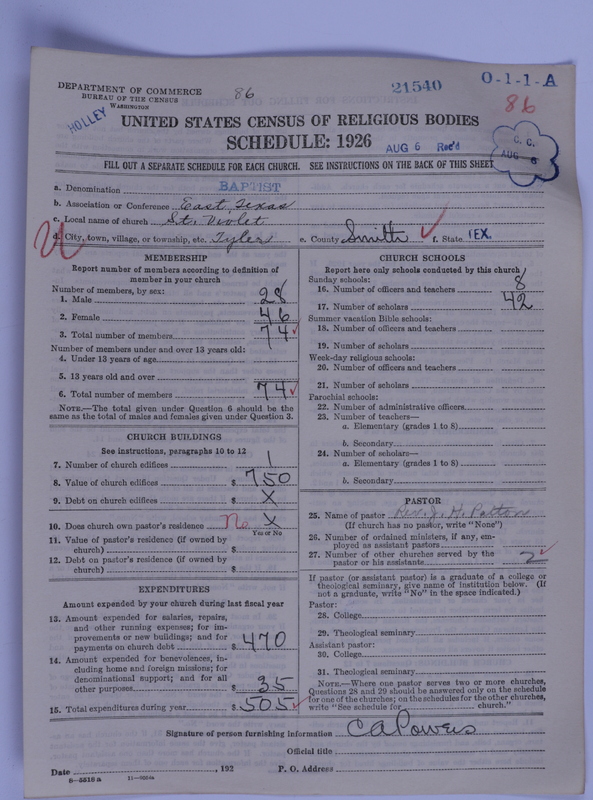 DEPARTMENT OF COMMERCE
BUREAU OF THE CENSUS
WASHINGTON
86
21540
O-1-1-A
86
HOLLEY
UNITED STATES CENSUS OF RELIGIOUS BODIES
SCHEDULE: 1926
AUG 6 Rec'd
C. C.
AUG 6
FILL OUT A SEPARATE SCHEDULE FOR EACH CHURCH. SEE INSTRUCTIONS ON THE BACK OF THIS SHEET
a. Denomination BAPTIST
b. Association or Conference East Texas
c. Local name of church St. Violet
d. City, town, village, or township, etc. Tyler e. County Smith f. State TEX.
MEMBERSHIP
Report number of members according to definition of
member in your church
Number of members, by sex:
1. Male 28
2. Female 46
3. Total number of members 74
Number of members under and over 13 years old:
4. Under 13 years of age
5. 13 years old and over
6. Total number of members 74
NOTE.—The total given under Question 6 should be the
same as the total of males and females given under Question 3.
CHURCH BUILDINGS
See instructions, paragraphs 10 to 12
7. Number of church edifices 1
8. Value of church edifices $ 750
9. Debt on church edifices $ X
10. Does church own pastor's residence No X
Yes or No
11. Value of pastor's residence (if owned by
church) $
12. Debt on pastor's residence (if owned by
church) $
EXPENDITURES
Amount expended by your church during last fiscal year
13. Amount expended for salaries, repairs,
and other running expenses; for im-
provements or new buildings; and for
payments on church debt $ 470
14. Amount expended for benevolences, in-
cluding home and foreign missions; for
denominational support; and for all
other purposes $ 35
15. Total expenditures during year $ 505
CHURCH SCHOOLS
Report here only schools conducted by this church
Sunday schools:
16. Number of officers and teachers 8
17. Number of scholars 42
Summer vacation Bible schools:
18. Number of officers and teachers
19. Number of scholars
Week-day religious schools:
20. Number of officers and teachers
21. Number of scholars
Parochial schools:
22. Number of administrative officers
23. Number of teachers—
a. Elementary (grades 1 to 8)
b. Secondary
24. Number of scholars—
a. Elementary (grades 1 to 8)
b. Secondary
PASTOR
25. Name of pastor Rev. J. H. Patton
(If church has no pastor, write "None")
26. Number of ordained ministers, if any, em-
ployed as assistant pastors
27. Number of other churches served by the
pastor or his assistants 2
If pastor (or assistant pastor) is a graduate of a college or
theological seminary, give name of institution below. (If
not a graduate, write "No" in the space indicated.)
Pastor:
28. College
29. Theological seminary
Assistant pastor:
30. College
31. Theological seminary
NOTE.—Where one pastor serves two or more churches,
Questions 28 and 29 should be answered only on the schedule
for one of the churches; on the schedules for the other churches,
write "See schedule for church."
Signature of person furnishing information C A Powers
Official title
Date , 192 P. O. Address
8-5518 a